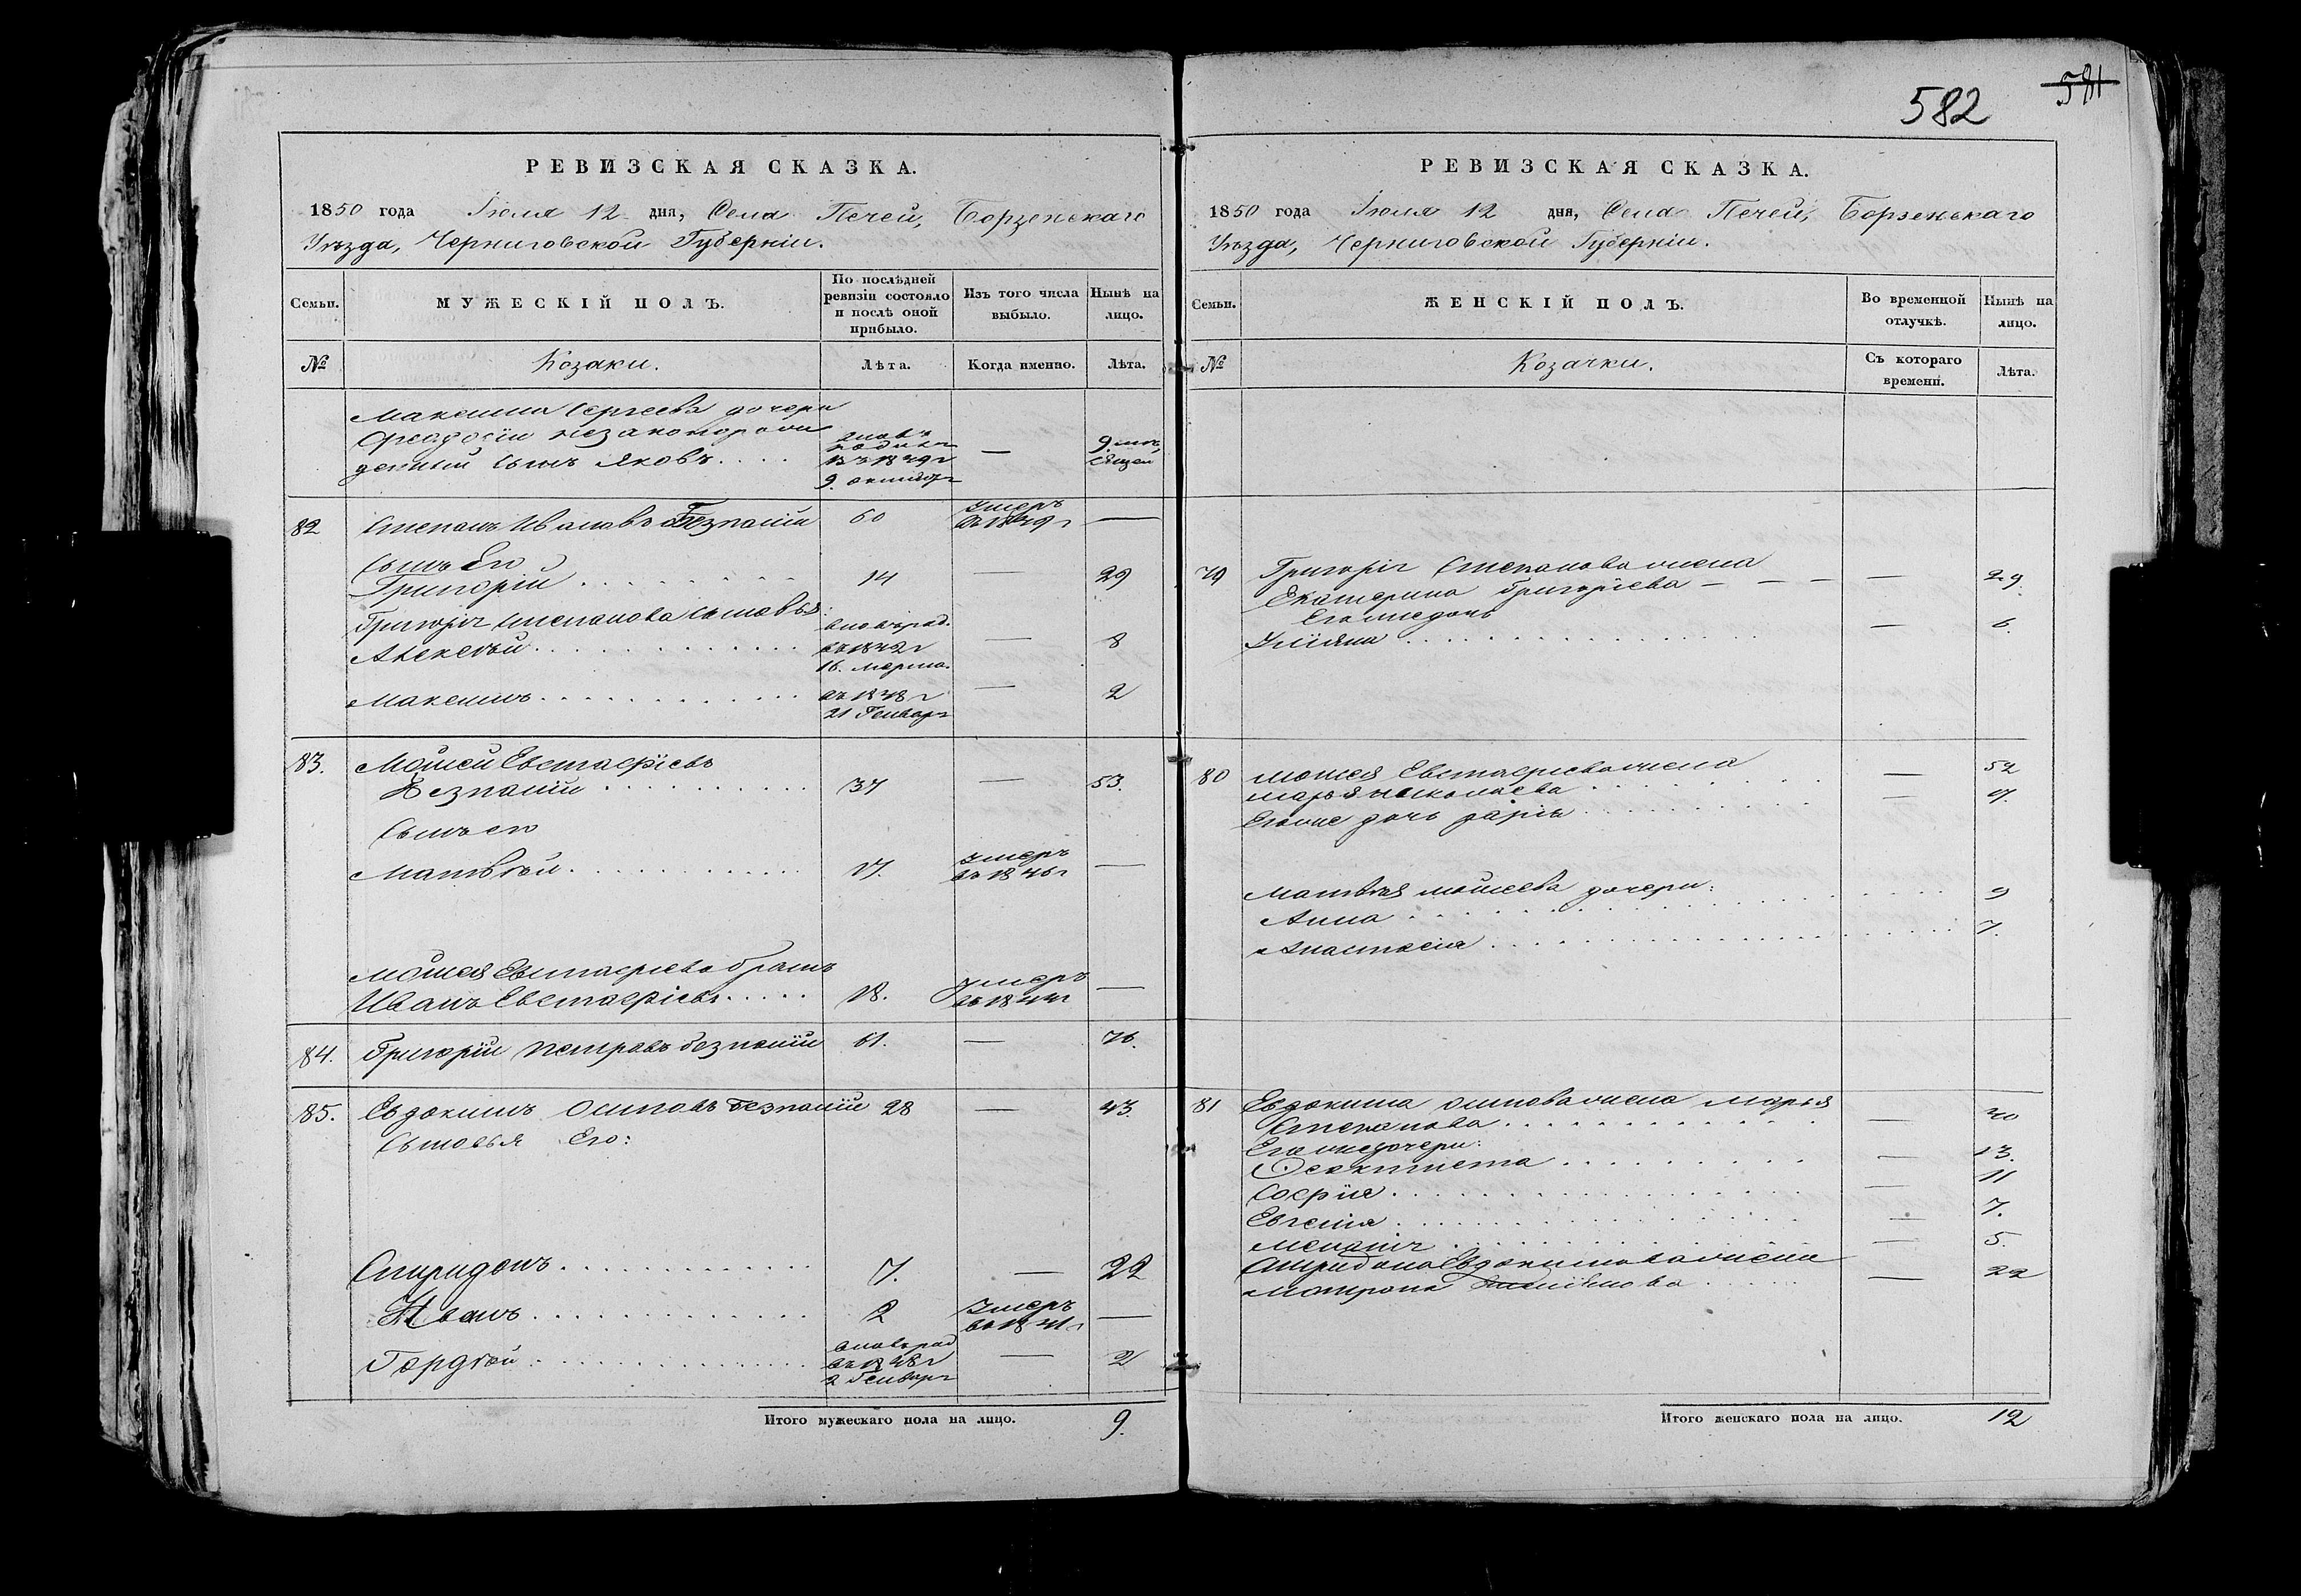 582
581
РЕВИЗСКАЯ СКАЗКА.
1850 года Іюля 12 дня, Села Печей, Борзенскаго
Уѣзда, Черниговской Губерніи.
Семьи.
МУЖЕСКІЙ ПОЛЪ.
По послѣдней
ревизіи состояло
и послѣ оной
прибыло.
Изъ того числа
выбыло.
Нынѣ на
лицо.
№
Козаки.
Лѣта.
Когда именно.
Лѣта.
Максима Сергеева дочери
Феодосіи незаконорож
денный сынъ Яковъ. . . .
вновь
въ 1849 г
9. октября
—
9. мѣ
сяцей
82 Степанъ Ивановъ Безпалій 60 Умеръ
въ 1849 г —
Сынъ Его
Григорій . . . . . . . . 14 — 29
Григорія Степанова сыновья:
Алексѣй . . . . . . . . . . . .
вновь рад.
въ 1842 г
16. марта.
— 8
Максимъ . . . . . . . . . . .
въ 1848 г
21 Генваря
— 2
83. Моисей Евстафіевъ
Безпалій . . . . . . . . . 37 — 53.
Сынъ его
Матвѣй . . . . . . . . . . . 17. Умеръ
въ 1846 г —
Моисея Евстафіева братъ
Иванъ Евстафіевъ . . . . . 18. Умеръ
—
84. Григорій Петровъ Безпалій 61. — 76.
85. Евдокимъ Осиповъ Безпалій 28 — 43.
Сыновья Его:
Спиридонъ . . . . . . . . . . . . 7. — 22
Иванъ . . . . . . . . . . . . . 2 Умеръ
въ 1841 г —
Гордѣй . . . . . . . . . . . . .
вновь рад
въ 1848 г
2 Генваря
— 2
Итого мужескаго пола на лицо. 9.
РЕВИЗСКАЯ СКАЗКА.
1850 года Іюля 12 дня, Села Печей, Борзенскаго
Уѣзда, Черниговской Губерніи.
Семьи.
ЖЕНСКІЙ ПОЛЪ.
Во временной
отлучкѣ.
Нынѣ на
лицо.
№
Козачки.
Съ котораго
времени.
Лѣта.
79 Григорія Степанова жена
Екатерина Григоріева — — — — 29.
Его же дочь
Уліяна . . . . . . . . . . . . . — 6.
80 Моисея Евстафіева жена
Марья Николаева . . . . . . . — 52
Его же дочь Дарія . . . . . . . . . — 9.
Матвѣя Моисеева дочери:
Анна . . . . . . . . . . . . . . . . . 9
Анастасія . . . . . . . . . . . . . . . . . 7
81 Евдокима Осипова жена Марья
Степанова . . . . . . . . . . . — 40
Его же дочери:
Феоктиста . . . . . . . . . — 13.
Софія . . . . . . . . . . . . . . . — 11
Евгенія . . . . . . . . . . . . . . . — 7.
Меланія . . . . . . . . . . . . . — 5.
Спиридона Евдокимова жена
Матрона . . . . . — 22
Итого женскаго пола на лицо. 12